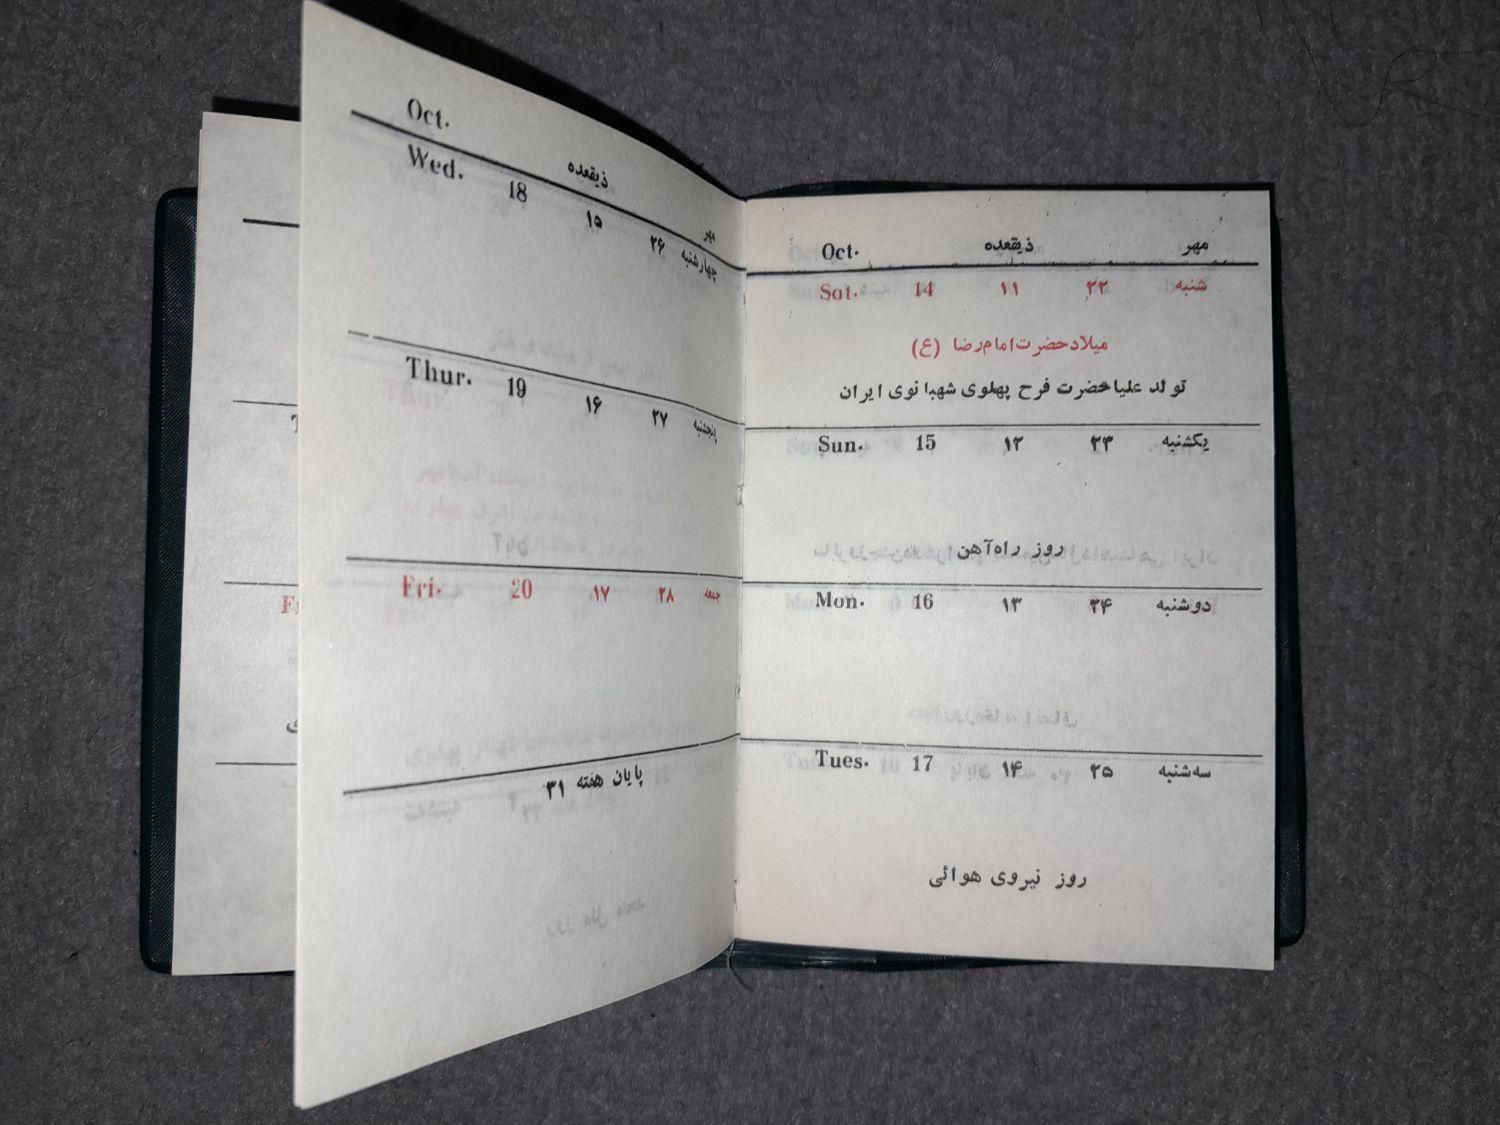 Oct. ذیقعده مهر
Sat. 14 ۱۱ ۲۲ شنبه
میلاد حضرت امام رضا (ع)
تولد علیاحضرت فرح پهلوی شهبانوی ایران
Sun. 15 ۱۲ ۲۳ یکشنبه
روز راه‌آهن
Mon. 16 ۱۳ ۲۴ دوشنبه
Tues. 17 ۱۴ ۲۵ سه‌شنبه
روز نیروی هوائی
Oct. ذیقعده مهر
Wed. 18 ۱۵ ۲۶ چهارشنبه
Thur. 19 ۱۶ ۲۷ پنجشنبه
Fri. 20 ۱۷ ۲۸ جمعه
پایان هفته ۳۱